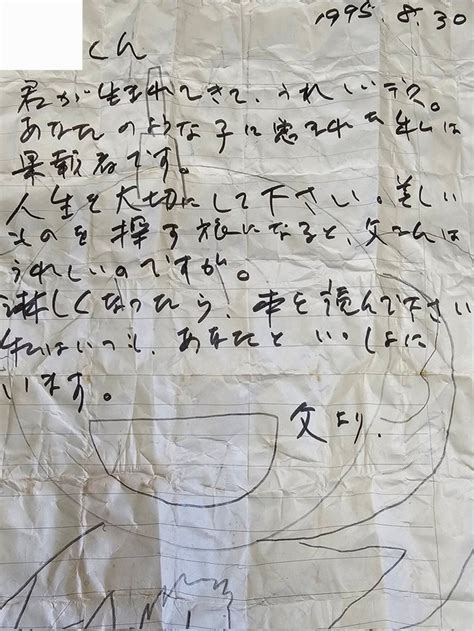 1995.8.30
くん
君が生まれてきて、うれしいデス。
あなたのような子に恵まれた私は
果報者です。
人生を大切にして下さい。美しい
ものを探す旅になると、父さんは
うれしいのですが。
淋しくなったら、本を読んで下さい
私はいつも、あなたといっしょに
います。
父より.